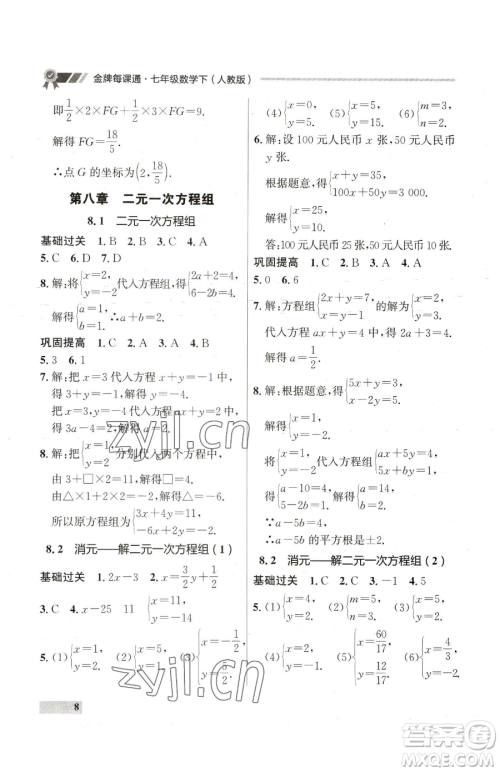 金牌每课通·七年级数学下（人教版）
即1/2×2×FG+1/2·FG×3=9.
解得 FG=18/5.
∴点 G 的坐标为(2, 18/5).
第八章 二元一次方程组
8.1 二元一次方程组
基础过关 1. B 2. B 3. C 4. A
5. C 6. D 7. A
8. 解:将{x=2, y=-2 代入方程组,得{2a+2=4, 6-2b=4.
解得{a=1, b=1. ∴a-b=1-1=0.
巩固提高 1. C 2. D 3. C 4. A
5. 3 6. 1
7. 解:把 x=3 代入方程 x+y=-1,
得 3+y=-1,解得 y=-4.
把 x=3,y=-4 代入方程 ax+
得 3a-4=2,解得 a=2.
8. 解:把{x=1, y=2 分别代入两个方程中.
由 3+□×2=11,得□=4.
由△×1+2=6,得△=4.
所以原方程组为{3x+4y=11, 4x+y=6.
8.2 消元——解二元一次方程组(1)
基础过关 1. 2x-3 2. 3/2y+1/2
3. C 4. x-25 11 {x=11, y=-14
5. (1){x=1, y=2. (2){x=5, y=2. (3){x=-1/2, y=-1/2.
(4){x=0, y=1. (5){m=2, n=3. (6){x=2, y=-1.
6. 解:设 100 元人民币 x 张,50 元人民币
y 张.
根据题意,得{x+y=35, 100x+50y=3 000.
解得{x=25, y=10.
答:100 元人民币 25 张,50 元人民币 10 张.
巩固提高 1. C 2. B 3. A 4. A
5. 0 6. 6
7. 解:方程组{2x+y=7, x+y=4. 的解为{x=3, y=1. 代入
方程 ax+y=a+2,得 3a+1=a+2.
解得 a=1/2.
8. 解:根据题意,得{5x+y=3, x-2y=5. 解得{x=1, y=-2.
将{x=1, y=-2 代入方程组{ax+5y=4, 5x+by=1.
得{a-10=4, 5-2b=1. 解得{a=14, b=2.
∵a-5b=4,
∴a-5b=4 的平方根是±2.
8.2 消元——解二元一次方程组(2)
基础过关 1. C 2. C 3. -1 4. 5
5. (1){x=3, y=2. (2){x=60/17, y=12/17. (3){x=4/3, y=-2.
8
zyjl.cn